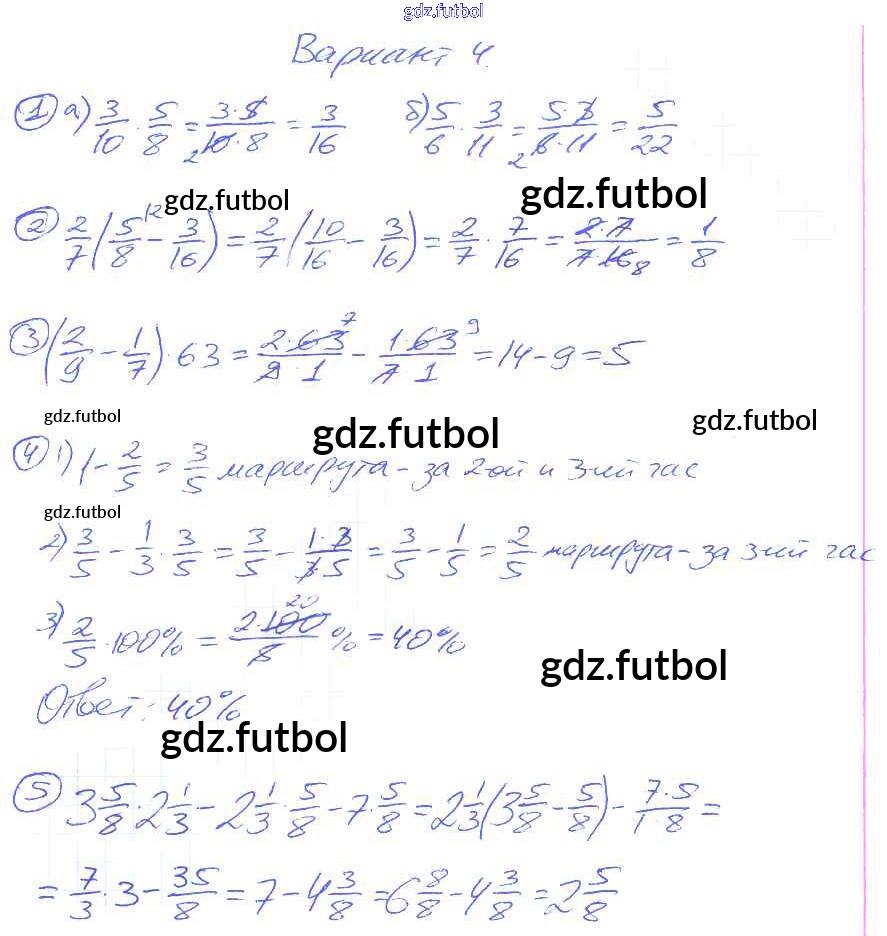 gdz.futbol
Вариант 4.
① а) 3/10 · 5/8 = 3·5/10·8 2 = 3/16 б) 5/6 · 3/11 = 5·3/6·11 2 = 5/22
gdz.futbol gdz.futbol
② 2/7 (5/8 \2 − 3/16) = 2/7 (10/16 − 3/16) = 2/7 · 7/16 = 2·7/7·16 8 = 1/8
③ (2/9 − 1/7) · 63 = 2·63 7/9·1 − 1·63 9/7·1 = 14 − 9 = 5
gdz.futbol gdz.futbol gdz.futbol
④ 1) 1 − 2/5 = 3/5 маршрута - за 2ой и 3-ий час
gdz.futbol
2) 3/5 − 1/3 · 3/5 = 3/5 − 1·3/3·5 = 3/5 − 1/5 = 2/5 маршрута - за 3-ий час
3) 2/5 · 100% = 2·100 20/5 % = 40%
gdz.futbol
Ответ: 40%
gdz.futbol
⑤ 3 5/8 · 2 1/3 − 2 1/3 · 5/8 − 7 · 5/8 = 2 1/3 (3 5/8 − 5/8) − 7·5/1·8 =
= 7/3 · 3 − 35/8 = 7 − 4 3/8 = 6 8/8 − 4 3/8 = 2 5/8